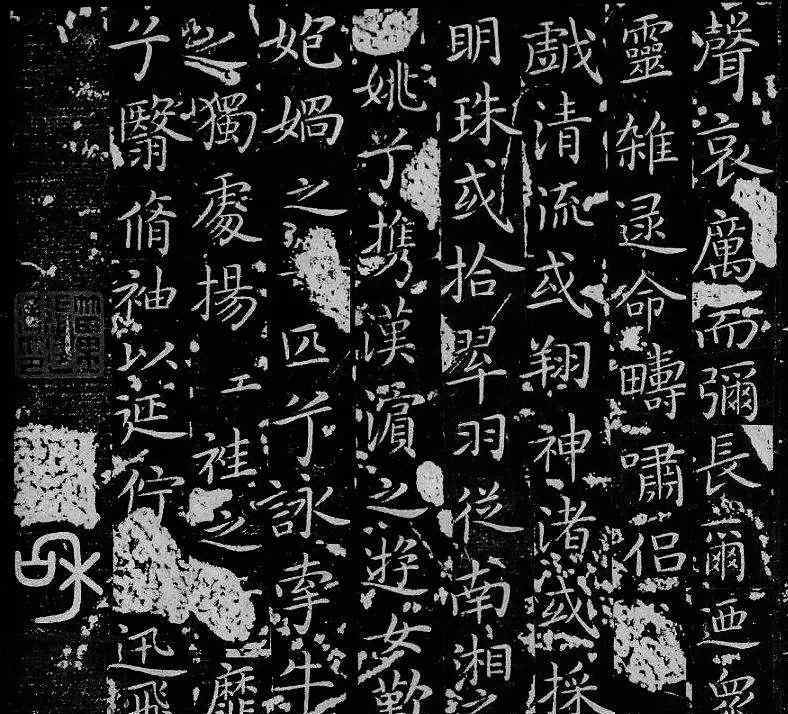 聲哀厲而彌長爾迺眾
靈雜遝命疇嘯侶
戲清流或翔神渚或採
明珠或拾翠羽從南湘之
姚兮攜漢濱之遊女歎
媧之匹兮詠牽牛
之獨處揚袿之靡
兮翳脩袖以延佇迅飛